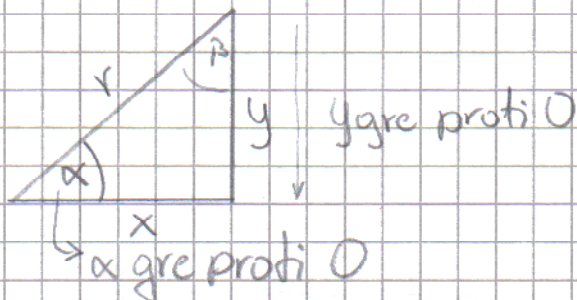 β
r
y
y gre proti 0
α
x
α gre proti 0